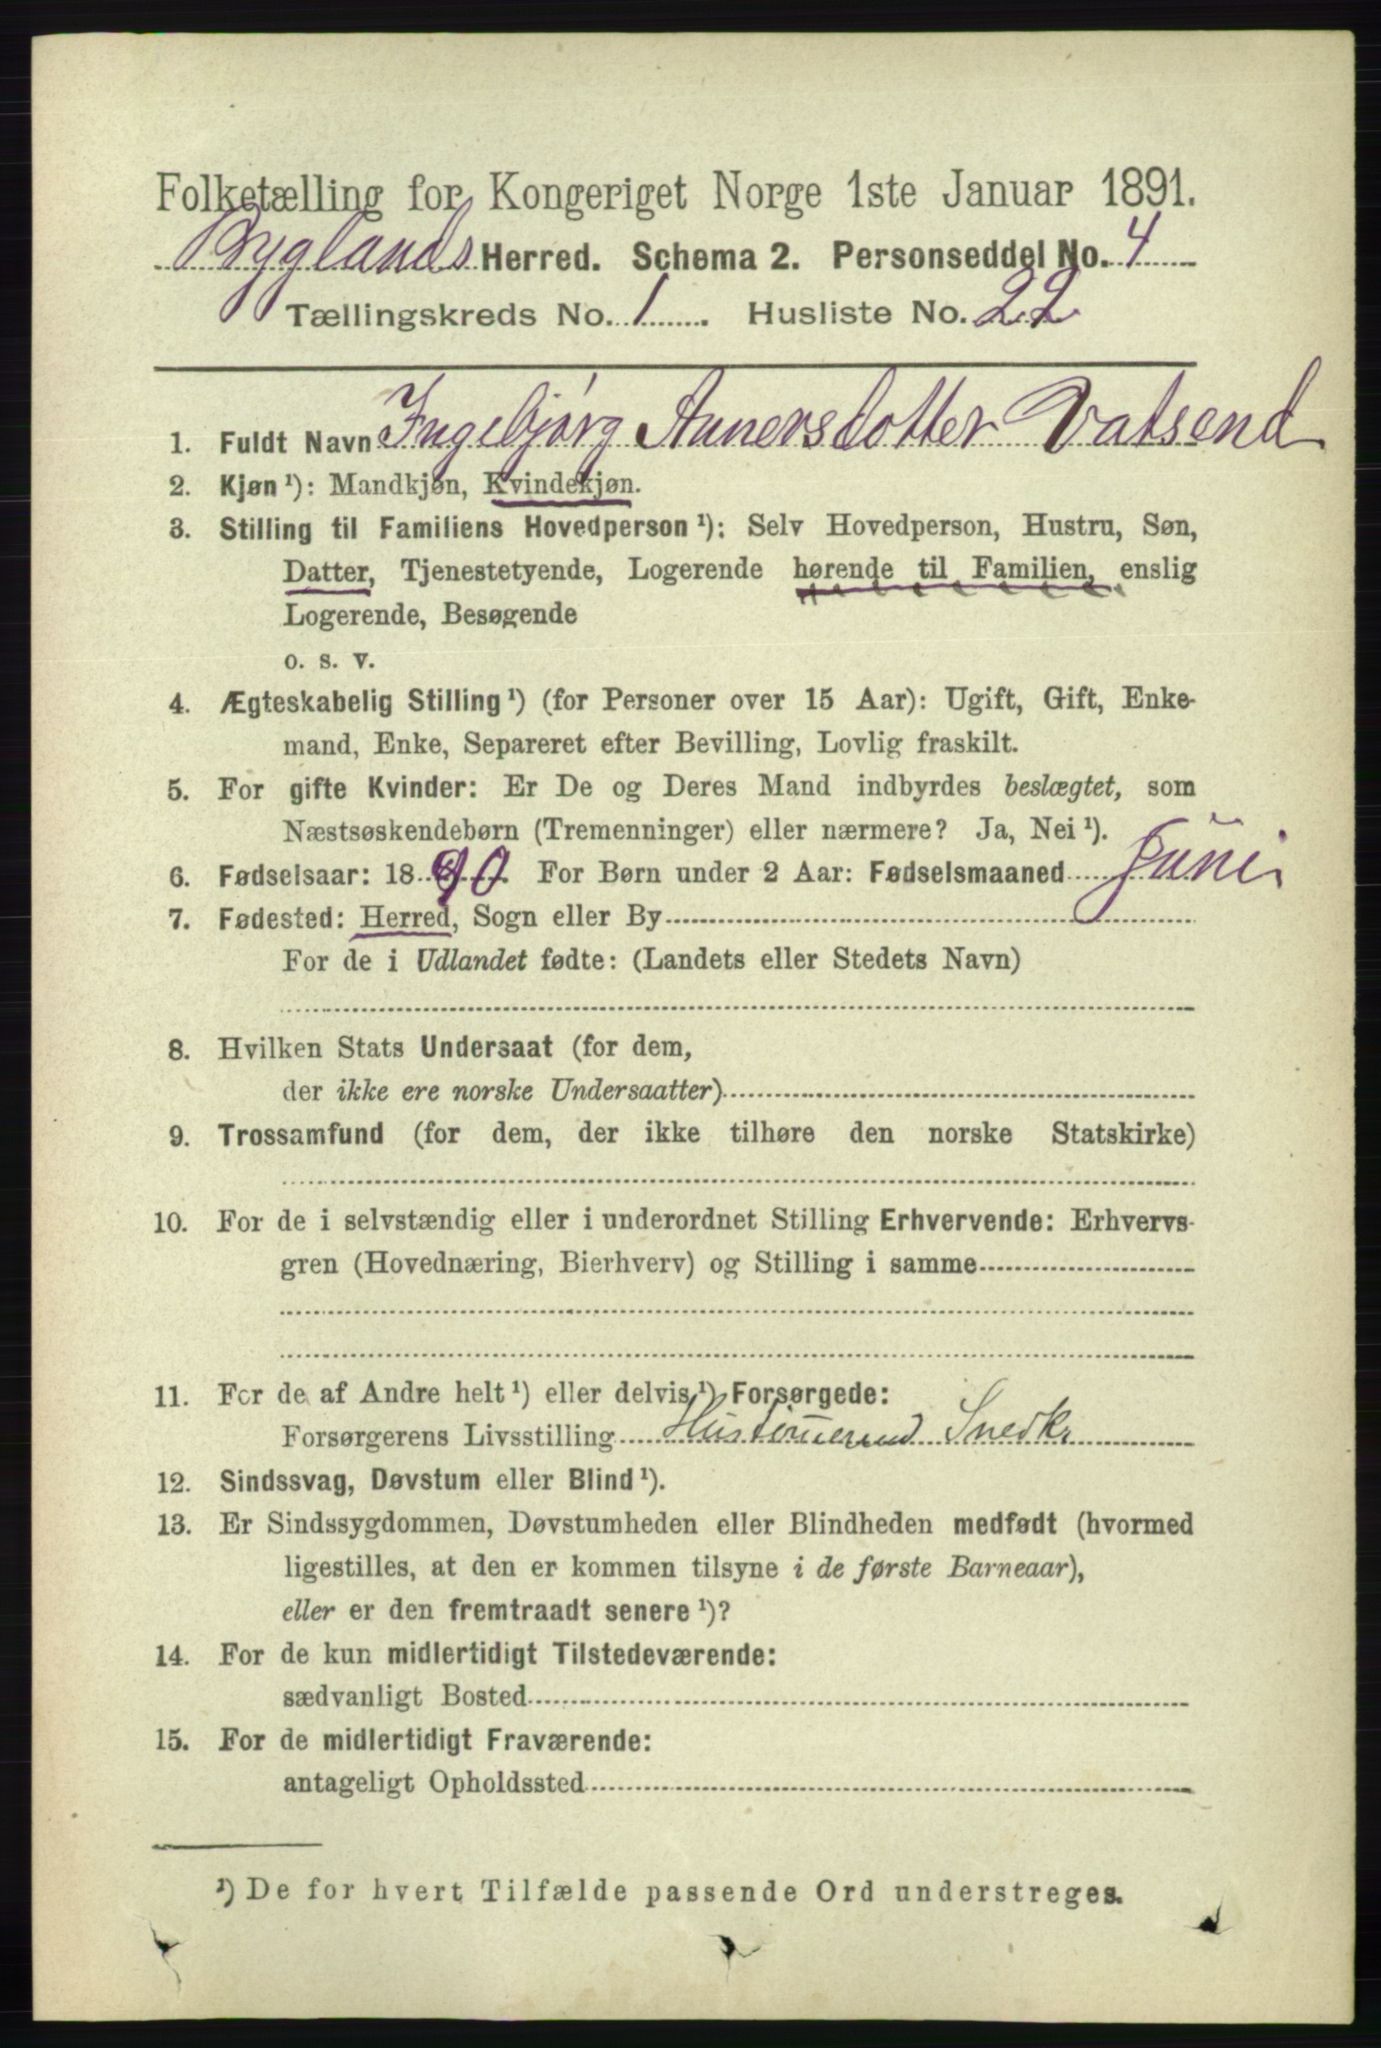 Folketælling for Kongeriget Norge 1ste Januar 1891.
Byglands Herred. Schema 2. Personseddel No. 4
Tællingskreds No. 1. Husliste No. 22
1. Fuldt Navn Ingebjørg Annersdotter Vatsend
2. Kjøn¹): Mandkjøn, Kvindekjøn.
3. Stilling til Familiens Hovedperson¹): Selv Hovedperson, Hustru, Søn,
Datter, Tjenestetyende, Logerende hørende til Familien, enslig
Logerende, Besøgende
o. s. v.
4. Ægteskabelig Stilling¹) (for Personer over 15 Aar): Ugift, Gift, Enke-
mand, Enke, Separeret efter Bevilling, Lovlig fraskilt.
5. For gifte Kvinder: Er De og Deres Mand indbyrdes beslægtet, som
Næstsøskendebørn (Tremenninger) eller nærmere? Ja, Nei¹).
6. Fødselsaar: 1890. For Børn under 2 Aar: Fødselsmaaned Juni
7. Fødested: Herred, Sogn eller By
For de i Udlandet fødte: (Landets eller Stedets Navn)
8. Hvilken Stats Undersaat (for dem,
der ikke ere norske Undersaatter)
9. Trossamfund (for dem, der ikke tilhøre den norske Statskirke)
10. For de i selvstændig eller i underordnet Stilling Erhvervende: Erhvervs-
gren (Hovednæring, Bierhverv) og Stilling i samme
11. For de af Andre helt¹) eller delvis¹) Forsørgede:
Forsørgerens Livsstilling Snedk
12. Sindssvag, Døvstum eller Blind¹).
13. Er Sindssygdommen, Døvstumheden eller Blindheden medfødt (hvormed
ligestilles, at den er kommen tilsyne i de første Barneaar),
eller er den fremtraadt senere¹)?
14. For de kun midlertidigt Tilstedeværende:
sædvanligt Bosted
15. For de midlertidigt Fraværende:
antageligt Opholdssted
¹) De for hvert Tilfælde passende Ord understreges.